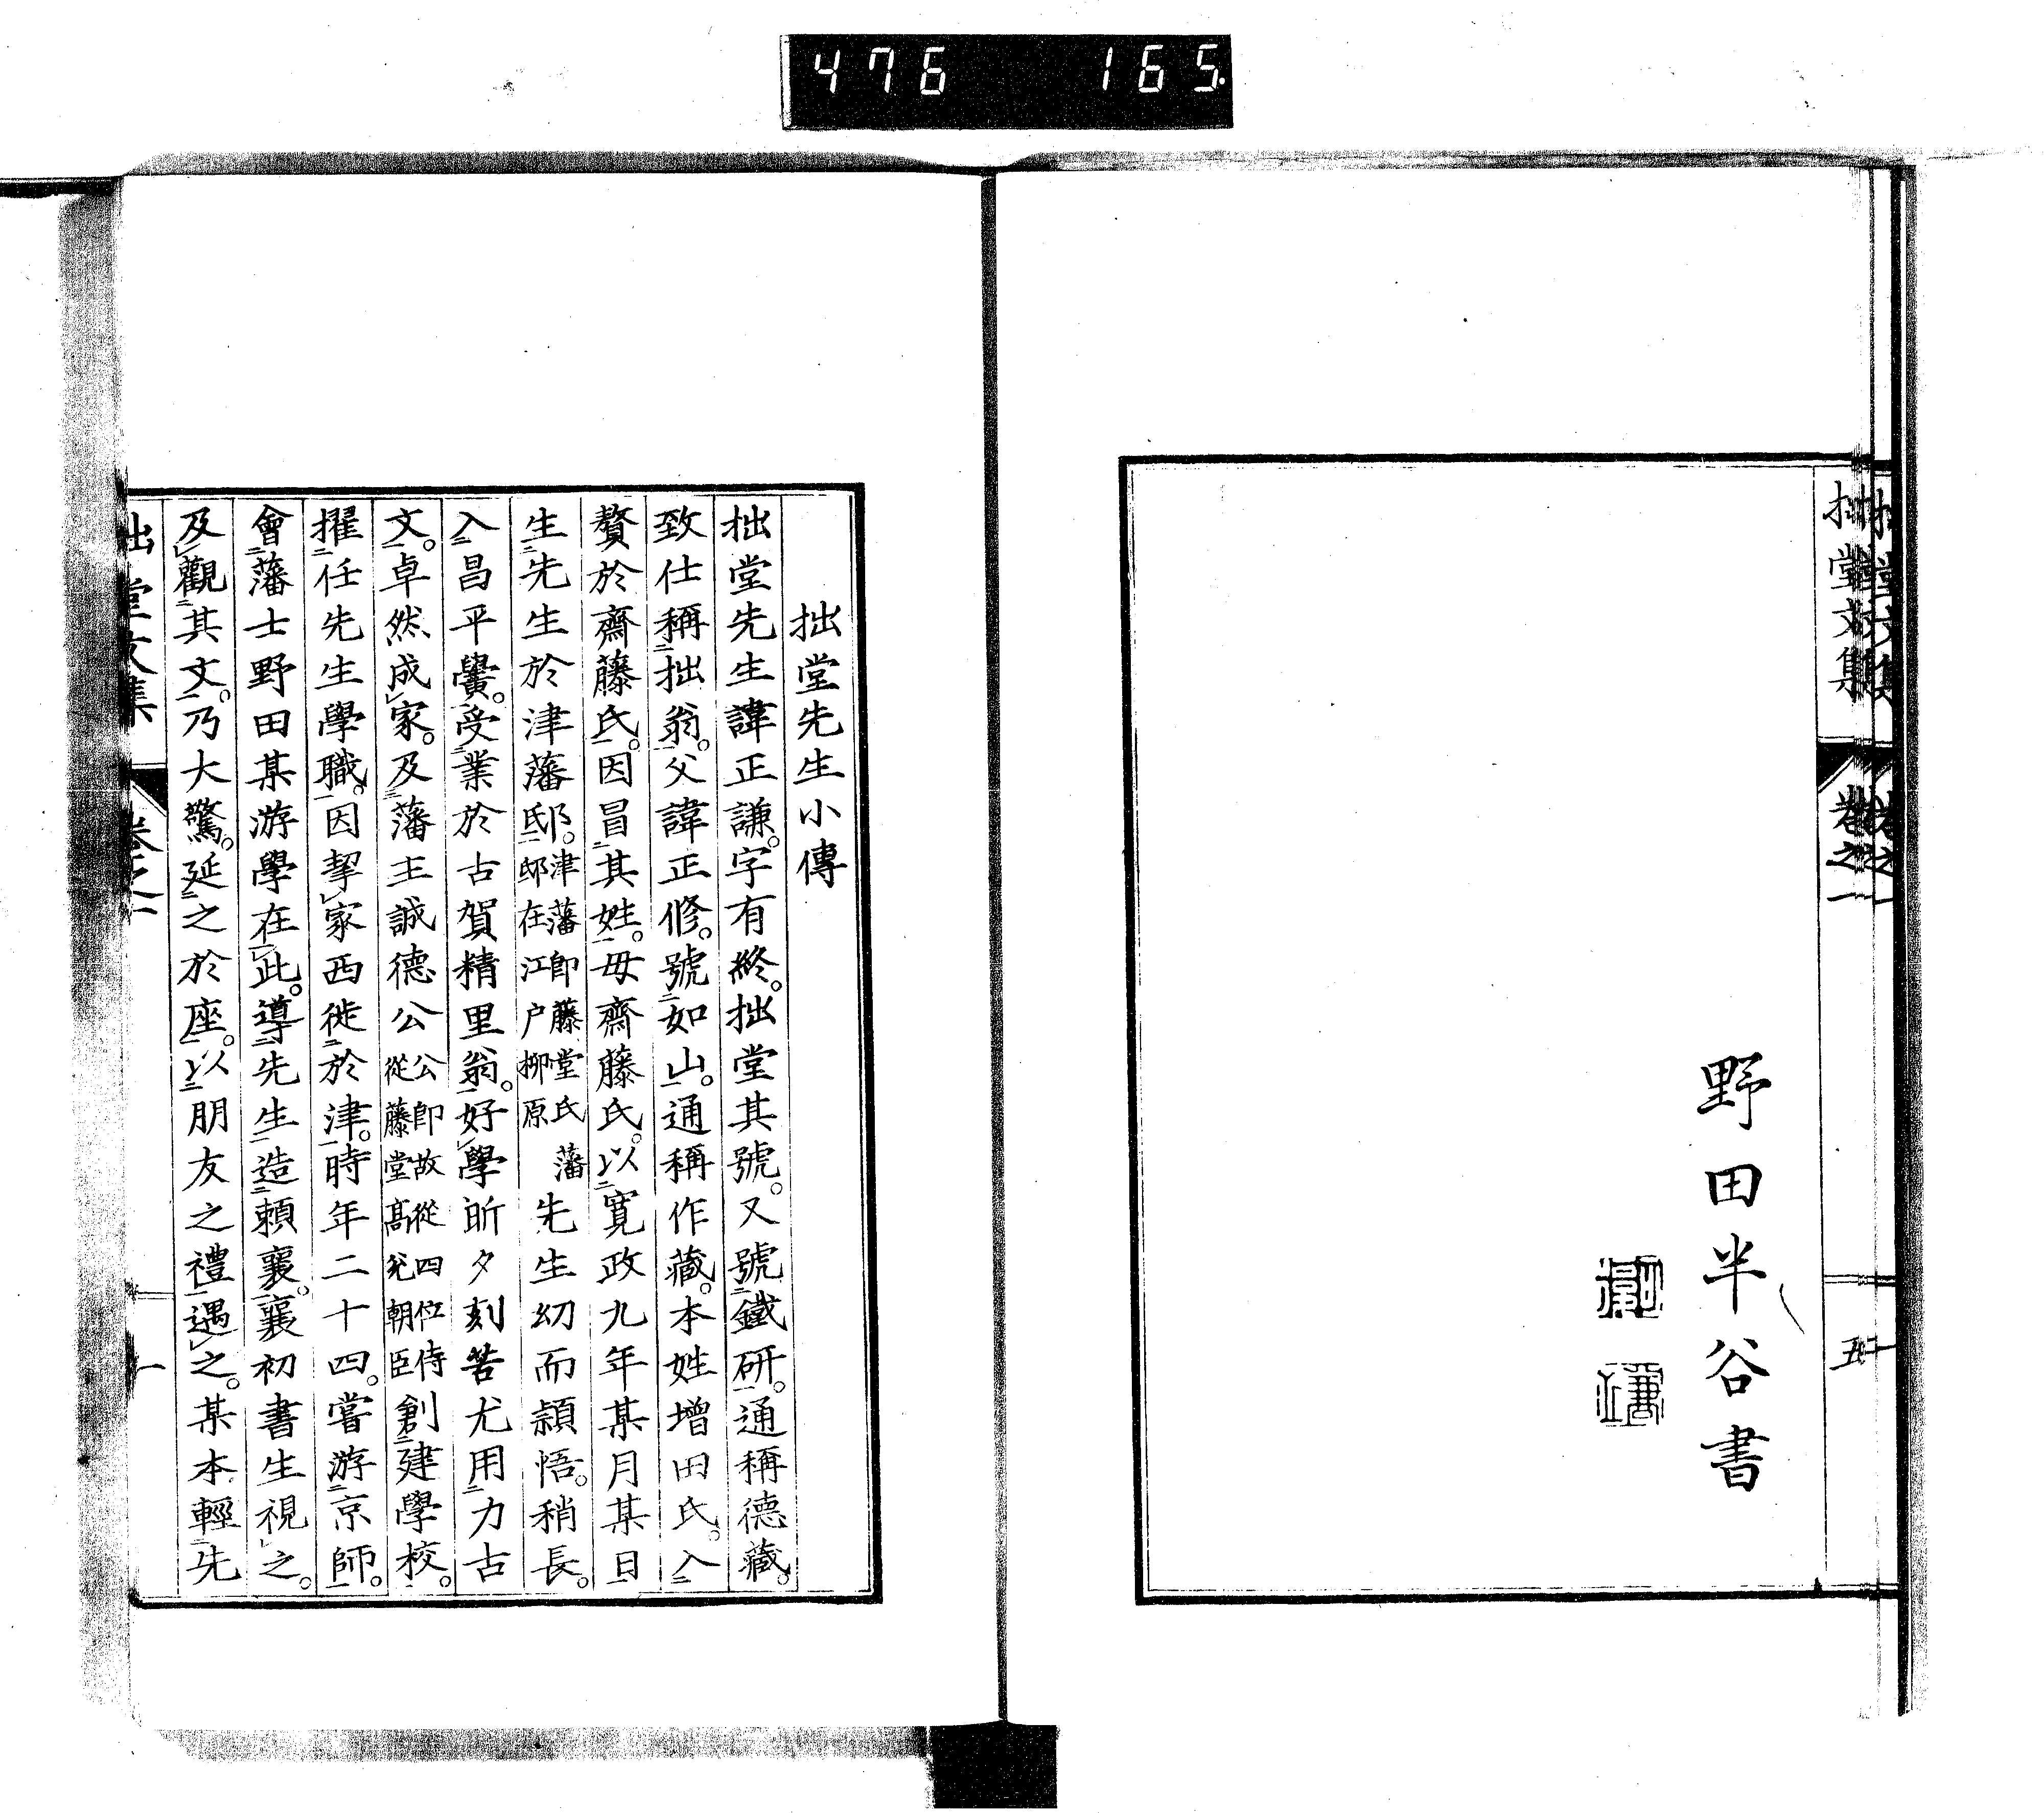 476 165
拙堂文集 卷之一 五
野田半谷書
拙堂先生小傳
拙堂先生諱正謙。字有終。拙堂其號。又號鐵研。通稱德藏。
致仕稱拙翁。父諱正修。號如山。通稱作藏。本姓增田氏。入
贅於齋藤氏。因冒其姓。母齋藤氏。以寬政九年某月某日
生先生於津藩邸。津藩卽藤堂氏藩邸在江戶柳原先生幼而穎悟。稍長。
入昌平黌。受業於古賀精里翁。好學昕夕刻苦尤用力古
文。卓然成家。及藩主誠德公公卽故從四位侍從藤堂高兌朝臣創建學校。
擢任先生學職。因挈家西徙於津。時年二十四。嘗游京師。
會藩士野田某游學在此。導先生造賴襄。襄初書生視之。
及觀其文。乃大驚。延之於座。以朋友之禮遇之。某本輕先
拙堂文集 卷之一 一